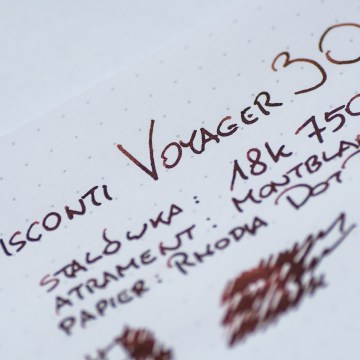 ISCONTI VOYAGER 30
STALÓWKA: 18K 750
ATRAMENT: MONTBLA
PAPIER: RHODIA DOT